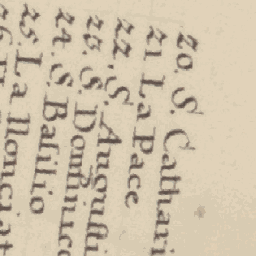 20. S. Cathari
21 La Pace
22. S. Augusti
23. S. Dominico
24. S. Basilio
25. La Nonciat